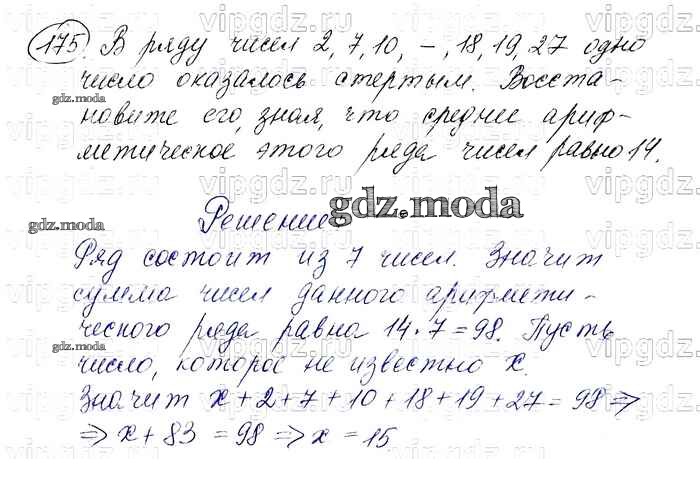 175. В ряду чисел 2, 7, 10, –, 18, 19, 27 одно
число оказалось стертым. Восста-
gdz.moda
новите его, зная, что среднее ариф-
метическое этого ряда чисел равно 14.
gdz.moda
Решение
gdz.moda
Ряд состоит из 7 чисел. Значит
сумма чисел данного арифмети-
ческого ряда равна 14·7=98. Пусть
gdz.moda
число, которое не известно x.
Значит x+2+7+10+18+19+27=98 =>
=> x+83=98 => x=15
vipgdz.ru